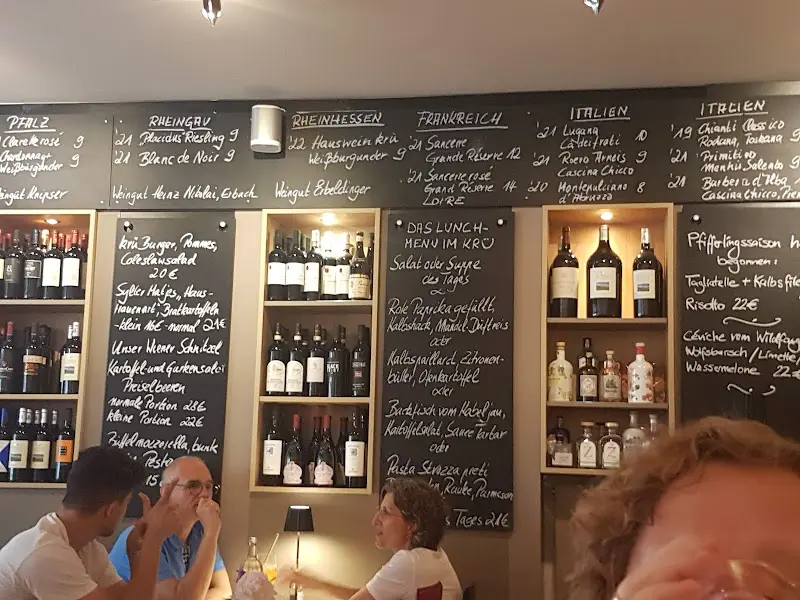 PFALZ
Clarette rosé 9
Chardonnay
Weißburgunder 9
Weingut Knipser
RHEINGAU
'21 „Placidus" Riesling 9
'21 Blanc de Noir 9
Weingut Heinz Nikolai, Erbach
RHEINHESSEN
'22 Hauswein krü
Weißburgunder 9
Weingut Erbeldinger
FRANKREICH
'21 Sancerre
Grande Réserve 12
'21 Sancerre rosé
Grand Réserve 14
LOIRE
ITALIEN
'21 Lugana
Cà dei frati 10
'21 Roero Arneis 9
Cascina Chicco
'20 Montepulciano 8
d'Abruzzo
ITALIEN
'19 Chianti Classico
Toskana 9
'21 Primitivo
Manduria Salento 9
'21 Barbera d'Alba
Cascina Chicco,
krü Burger, Pommes,
Coleslawsalad
20 €
Sylter Matjes „Haus-
frauenart", Bratkartoffeln
- klein 18€ - normal 24€
Unser Wiener Schnitzel
Kartoffel und Gurkensalat
Preiselbeeren
normale Portion 28€
kleine Portion 22€
Büffelmozzarella, bunte
Pesto
15
DAS LUNCH-
MENU IM KRÜ
Salat oder Suppe
des Tages
Rote Paprika gefüllt,
Kalbshack, Mandel
oder
Kalbspaillard, Zitronen-
butter, Ofenkartoffel
oder
Backfisch vom Kabeljau,
Kartoffelsalat, Sauce Tartar
oder
Pasta Strozzapreti
Rauke, Parmesan
Tages 21€
Pfifferlingssaison h
begonnen:
Tagliatelle + Kalbsfile
Risotto 22€
Céviche vom Wildfang
Wolfsbarsch / Limette /
Wassermelone 22